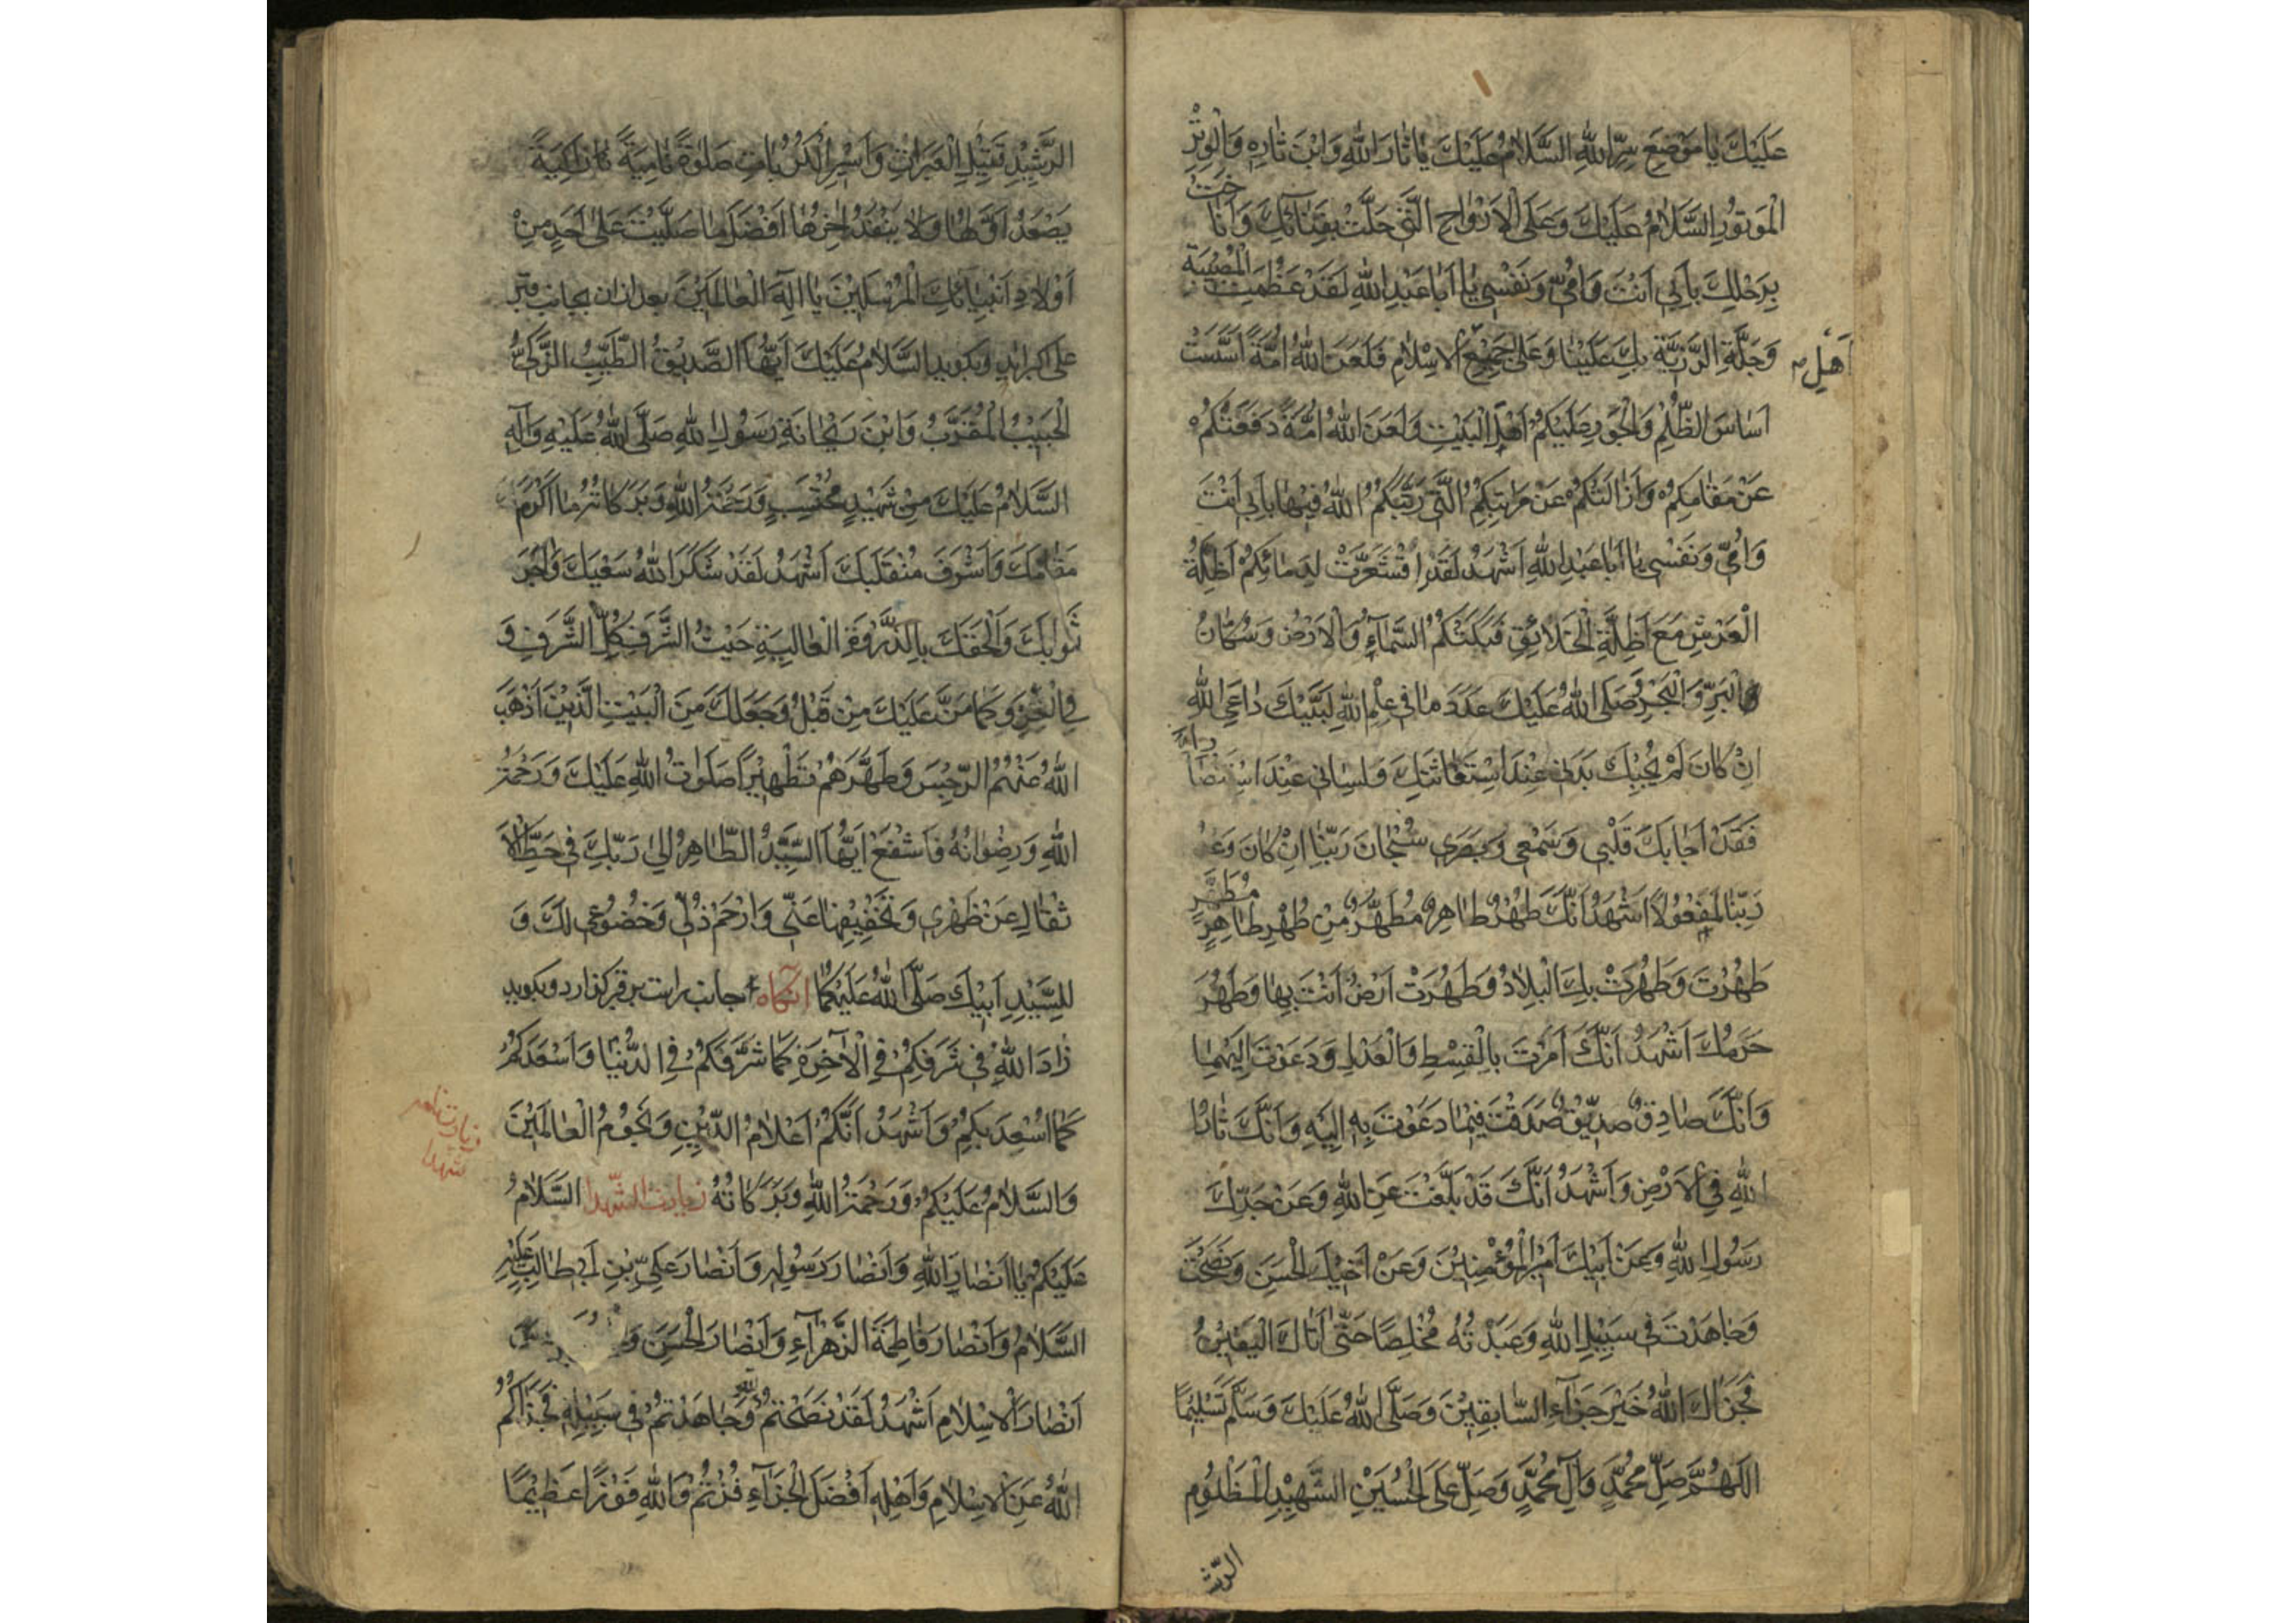 عَلَيْكَ يَا مَوْضِعَ سِرِّ اللهِ السَّلَامُ عَلَيْكَ يَا ثَارَ اللهِ وَابْنَ ثَارِهِ وَالْوِتْرَ
الْمَوْتُورَ السَّلَامُ عَلَيْكَ وَعَلَى الْاَرْوَاحِ الَّتِي حَلَّتْ بِفِنَائِكَ وَاَنَاخَتْ
بِرَحْلِكَ بِاَبِي اَنْتَ وَاُمِّي وَنَفْسِي يَا اَبَا عَبْدِ اللهِ لَقَدْ عَظُمَتِ الْمُصِيبَةُ
وَجَلَّةِ الرَّزِيَّةُ بِكَ عَلَيْنَا وَعَلَى جَمِيْعِ الْاِسْلَامِ فَلَعَنَ اللهُ اُمَّةً اَسَّسَتْ
اَهْلِ
اَسَاسَ الظُّلْمِ وَالْجَوْرِ عَلَيْكُمْ اَهْلَ الْبَيْتِ وَلَعَنَ اللهُ اُمَّةً دَفَعَتْكُمْ
عَنْ مَقَامِكُمْ وَاَزَالَتْكُمْ عَنْ مَرَاتِبِكُمُ الَّتِي رَتَّبَكُمُ اللهُ فِيْهَا بِاَبِي اَنْتَ
وَاُمِّي وَنَفْسِي يَا اَبَا عَبْدِ اللهِ اَشْهَدُ لَقَدِ اقْشَعَرَّتْ لِدِمَائِكُمْ اَظِلَّةُ
الْعَرْشِ مَعَ اَظِلَّةِ الْخَلَائِقِ فَبَكَتْكُمُ السَّمَاءُ وَالْاَرْضُ وَسُكَّانُ
وَالْبَرِّ وَالْبَحْرِ صَلَّى اللهُ عَلَيْكَ عَدَدَ مَا فِي عِلْمِ اللهِ لَبَّيْكَ دَاعِيَ اللهِ
اِنْ كَانَ لَمْ يُجِبْكَ بَدَنِي عِنْدَ اسْتِغَاثَتِكَ وَلِسَانِي عِنْدَ اسْتِنْصَارِكَ
فَقَدْ اَجَابَكَ قَلْبِي وَسَمْعِي وَبَصَرِي سُبْحَانَ رَبِّنَا اِنْ كَانَ وَعْدُ
رَبِّنَا لَمَفْعُولًا اَشْهَدُ اَنَّكَ طُهْرٌ طَاهِرٌ مُطَهَّرٌ مِنْ طُهْرٍ طَاهِرٍ مُطَهَّرٍ
طَهُرْتَ وَطَهُرَتْ بِكَ الْبِلَادُ وَطَهُرَتْ اَرْضٌ اَنْتَ بِهَا وَطَهُرَ
حَرَمُكَ اَشْهَدُ اَنَّكَ اَمَرْتَ بِالْقِسْطِ وَالْعَدْلِ وَدَعَوْتَ اِلَيْهِمَا
وَاَنَّكَ صَادِقٌ صِدِّيْقٌ صَدَقْتَ فِيْمَا دَعَوْتَ بِهِ اِلَيْهِ وَاَنَّكَ ثَارُ
اللهِ فِي الْاَرْضِ وَاَشْهَدُ اَنَّكَ قَدْ بَلَّغْتَ عَنِ اللهِ وَعَنْ جَدِّكَ
رَسُولِ اللهِ وَعَنْ اَبِيْكَ اَمِيْرِ الْمُؤْمِنِيْنَ وَعَنْ اَخِيْكَ الْحَسَنِ وَنَصَحْتَ
وَجَاهَدْتَ فِي سَبِيْلِ اللهِ وَعَبَدْتَهُ مُخْلِصًا حَتَّى اَتَاكَ الْيَقِيْنُ
فَجَزَاكَ اللهُ خَيْرَ جَزَاءِ السَّابِقِيْنَ وَصَلَّى اللهُ عَلَيْكَ وَسَلَّمَ تَسْلِيْمًا
اَللّهُمَّ صَلِّ مُحَمَّدٍ وَآلِ مُحَمَّدٍ وَصَلِّ عَلَى الْحُسَيْنِ الشَّهِيْدِ الْمَظْلُوْمِ
الرَّشِ
الرَّشِيْدِ قَتِيْلِ الْعَبَرَاتِ وَاَسِيْرِ الْكُرُبَاتِ صَلَوٰةً نَامِيَةً زَاكِيَةً
يَصْعَدُ اَوَّلُهَا وَلَا يَنْفَدُ اٰخِرُهَا اَفْضَلَ مَا صَلَّيْتَ عَلَى اَحَدٍ مِنْ
اَوْلَادِ اَنْبِيَائِكَ الْمُرْسَلِيْنَ يَا اِلٰهَ الْعَالَمِيْنَ بعد ازان بجانب قبر
على اكبر ايد وبكويد السَّلَامُ عَلَيْكَ اَيُّهَا الصِّدِّيْقُ الطَّيِّبُ الزَّكِيُّ
الْحَبِيْبُ الْمُقَرَّبُ وَابْنَ رَيْحَانَةِ رَسُولِ اللهِ صَلَّى اللهُ عَلَيْهِ وَآلِهِ
السَّلَامُ عَلَيْكَ مِنْ شَهِيْدٍ مُحْتَسِبٍ وَرَحْمَةُ اللهِ وَبَرَكَاتُهُ مَا اَكْرَمَ
مَقَامَكَ وَاَشْرَفَ مُنْقَلَبَكَ اَشْهَدُ لَقَدْ شَكَرَ اللهُ سَعْيَكَ وَاَجْزَلَ
ثَوَابَكَ وَاَلْحَقَكَ بِالذِّرْوَةِ الْعَالِيَةِ حَيْثُ الشَّرَفُ كُلُّ الشَّرَفِ وَ
فِي الْغُرَفِ كَمَا مَنَّ عَلَيْكَ مِنْ قَبْلُ وَجَعَلَكَ مِنَ الْبَيْتِ الَّذِيْنَ اَذْهَبَ
اللهُ عَنْهُمُ الرِّجْسَ وَطَهَّرَهُمْ تَطْهِيْرًا صَلَوَاتُ اللهِ عَلَيْكَ وَرَحْمَةُ
اللهِ وَرِضْوَانُهُ فَاشْفَعْ اَيُّهَا السَّيِّدُ الطَّاهِرُ اِلَى رَبِّكَ فِي حَطِّ الْاَ
ثْقَالِ عَنْ ظَهْرِي وَتَخْفِيْفِهَا عَنِّي وَارْحَمْ ذُلِّي وَخُضُوْعِي لَكَ وَ
لِلسَّيِّدِ اَبِيْكَ صَلَّى اللهُ عَلَيْكُمَا آنكاه جانب راست بر قبر كذارد وبكويد
زَادَ اللهُ فِي شَرَفِكُمْ فِي الْاٰخِرَةِ كَمَا شَرَّفَكُمْ فِي الدُّنْيَا وَاَسْعَدَكُمْ
كَمَا اَسْعَدَ بِكُمْ وَاَشْهَدُ اَنَّكُمْ اَعْلَامُ الدِّيْنِ وَنُجُوْمُ الْعَالَمِيْنَ
وَالسَّلَامُ عَلَيْكُمْ وَرَحْمَةُ اللهِ وَبَرَكَاتُهُ زيارت الشهدا السَّلَامُ
زيارت نامه
شهدا
عَلَيْكُمْ يَا اَنْصَارَ اللهِ وَاَنْصَارَ رَسُولِهِ وَاَنْصَارَ عَلِيِّ بْنِ اَبِي طَالِبٍ عَلَيْهِ
السَّلَامُ وَاَنْصَارَ فَاطِمَةَ الزَّهْرَاءِ وَاَنْصَارَ الْحَسَنِ وَ
اَنْصَارَ الْاِسْلَامِ اَشْهَدُ لَقَدْ نَصَحْتُمْ لِلّٰهِ وَجَاهَدْتُمْ فِي سَبِيْلِهِ فَجَزَاكُمُ
اللهُ عَنِ الْاِسْلَامِ وَاَهْلِهِ اَفْضَلَ الْجَزَاءِ فُزْتُمْ وَاللهِ فَوْزًا عَظِيْمًا